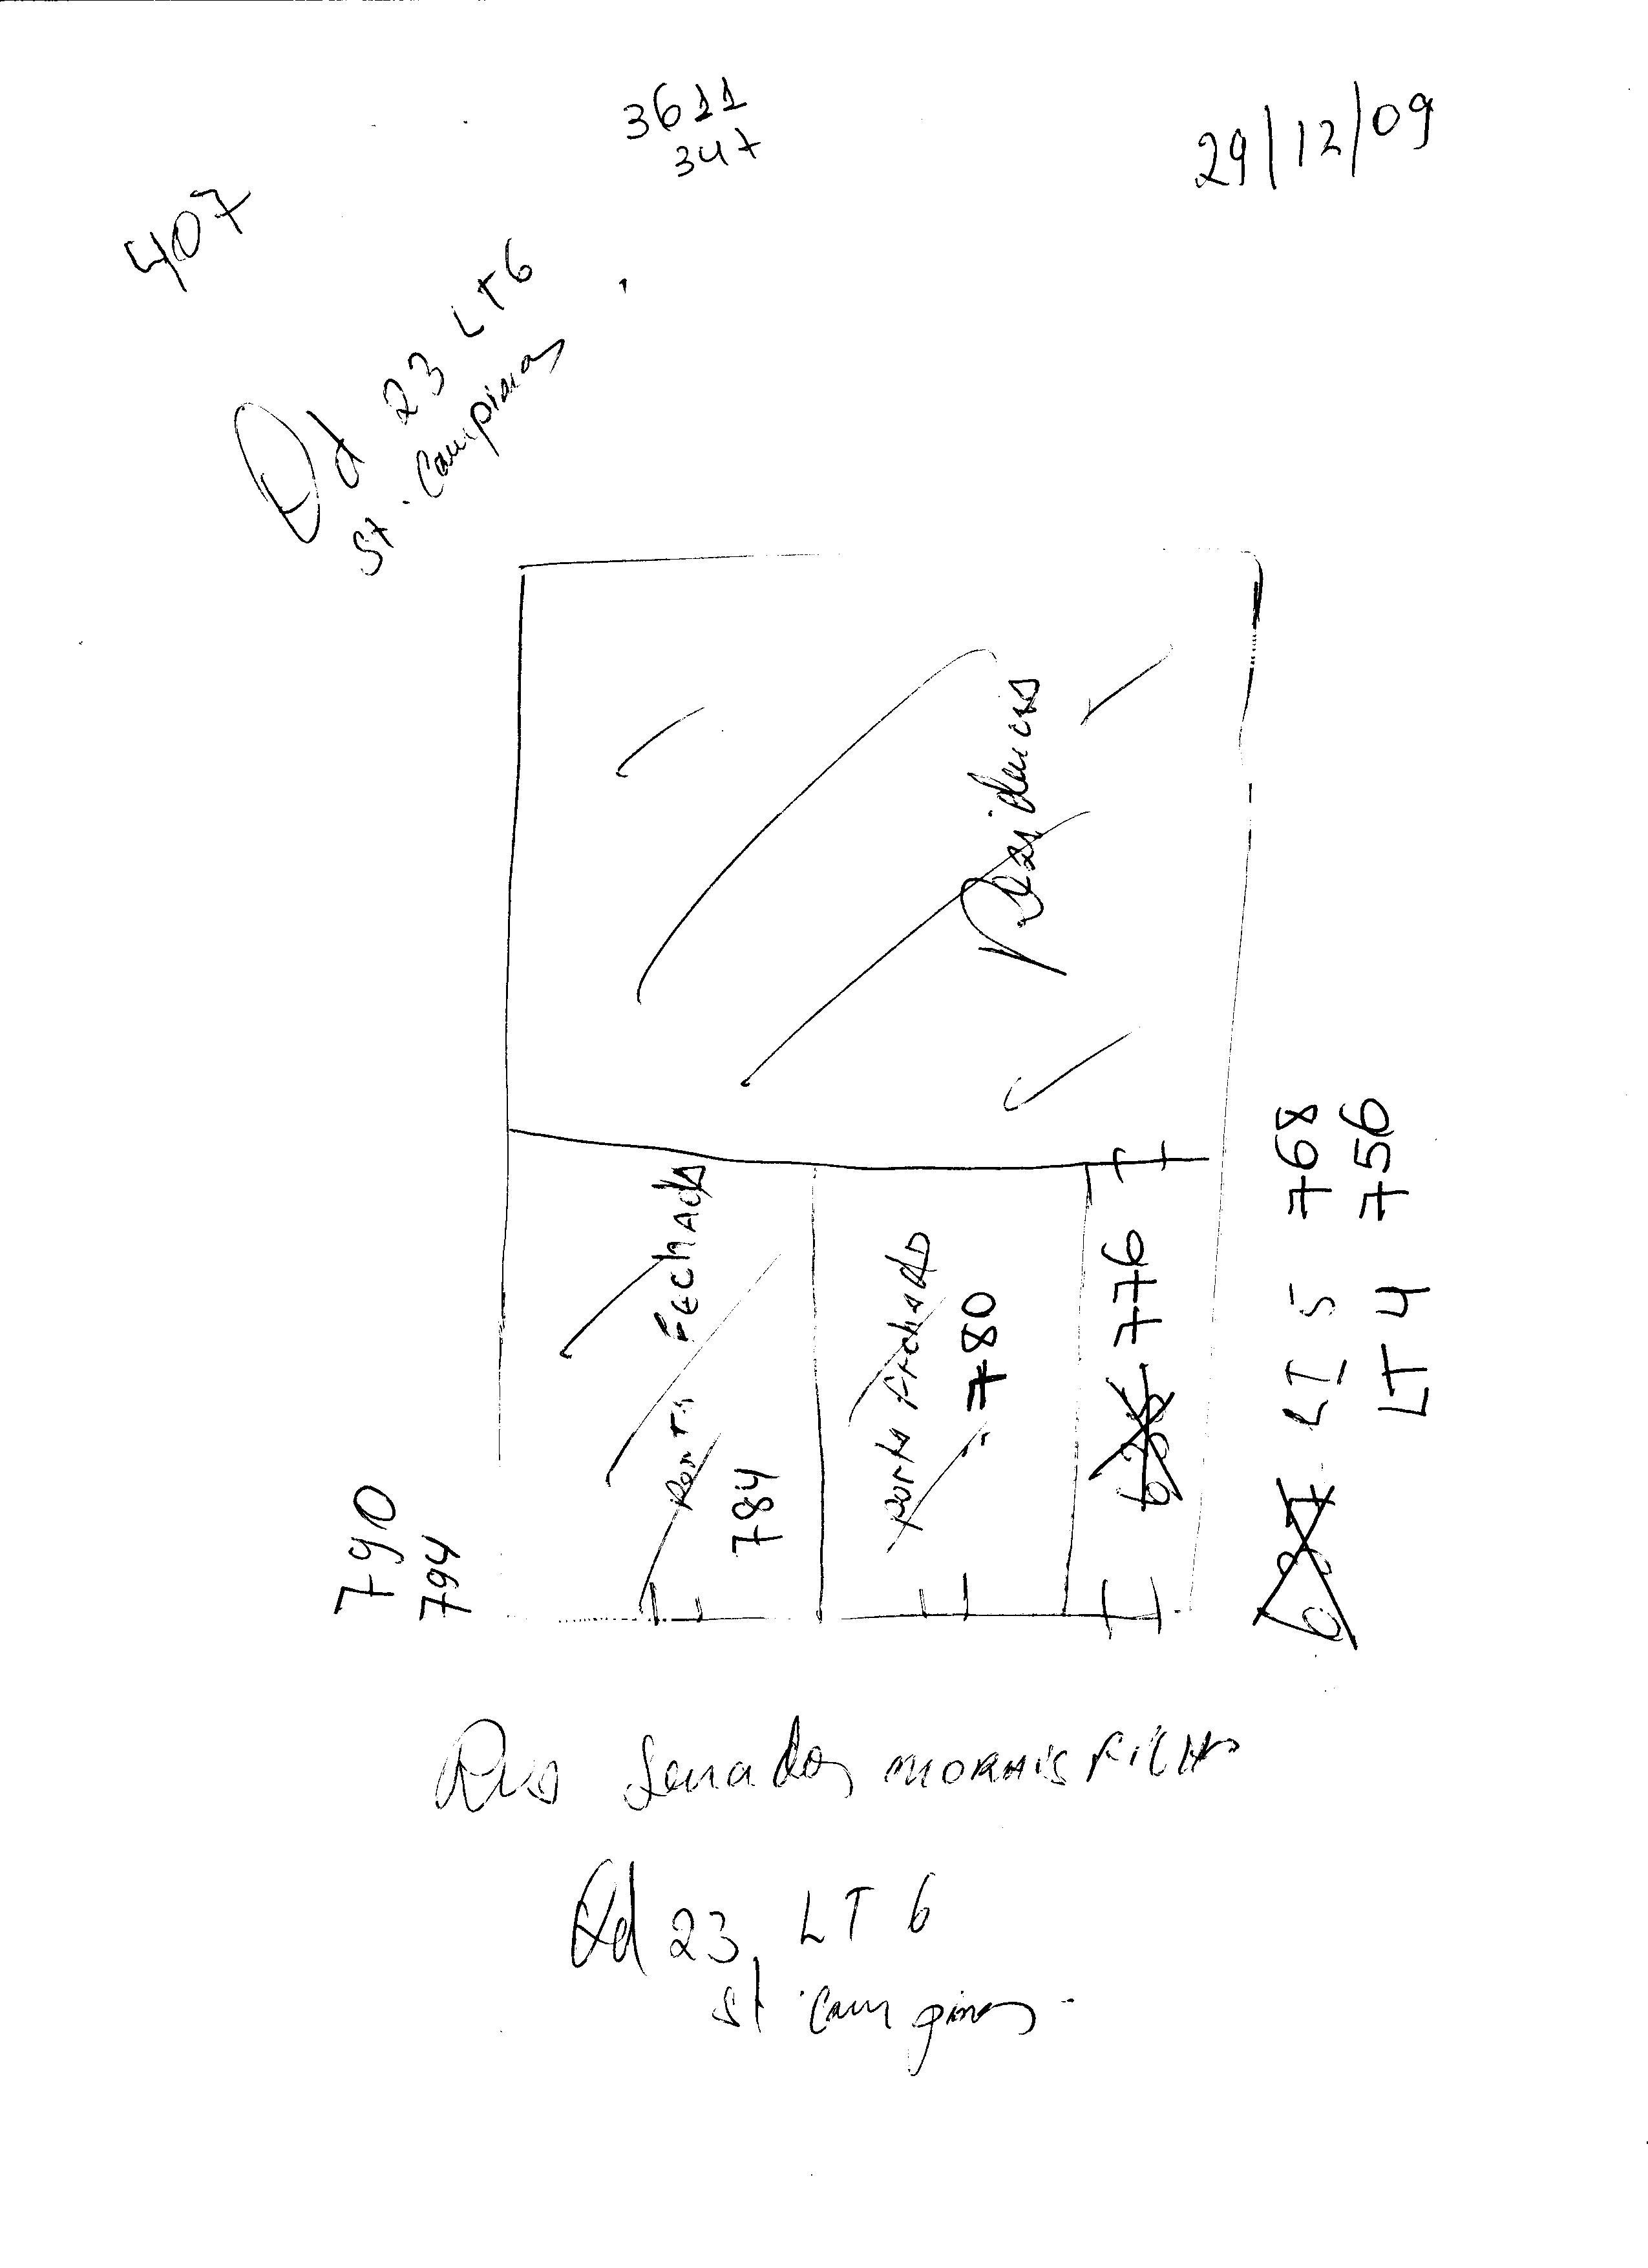 3611
347
29/12/09
407
Qd 23 LT 6
St. Campinas
Residencia
Porta Fechada
784
Porta Fechada
780
776
790
794
LT 5 768
LT 4 756
Rua Senador MORAIS FILHO
Qd 23, LT 6
St. Campinas